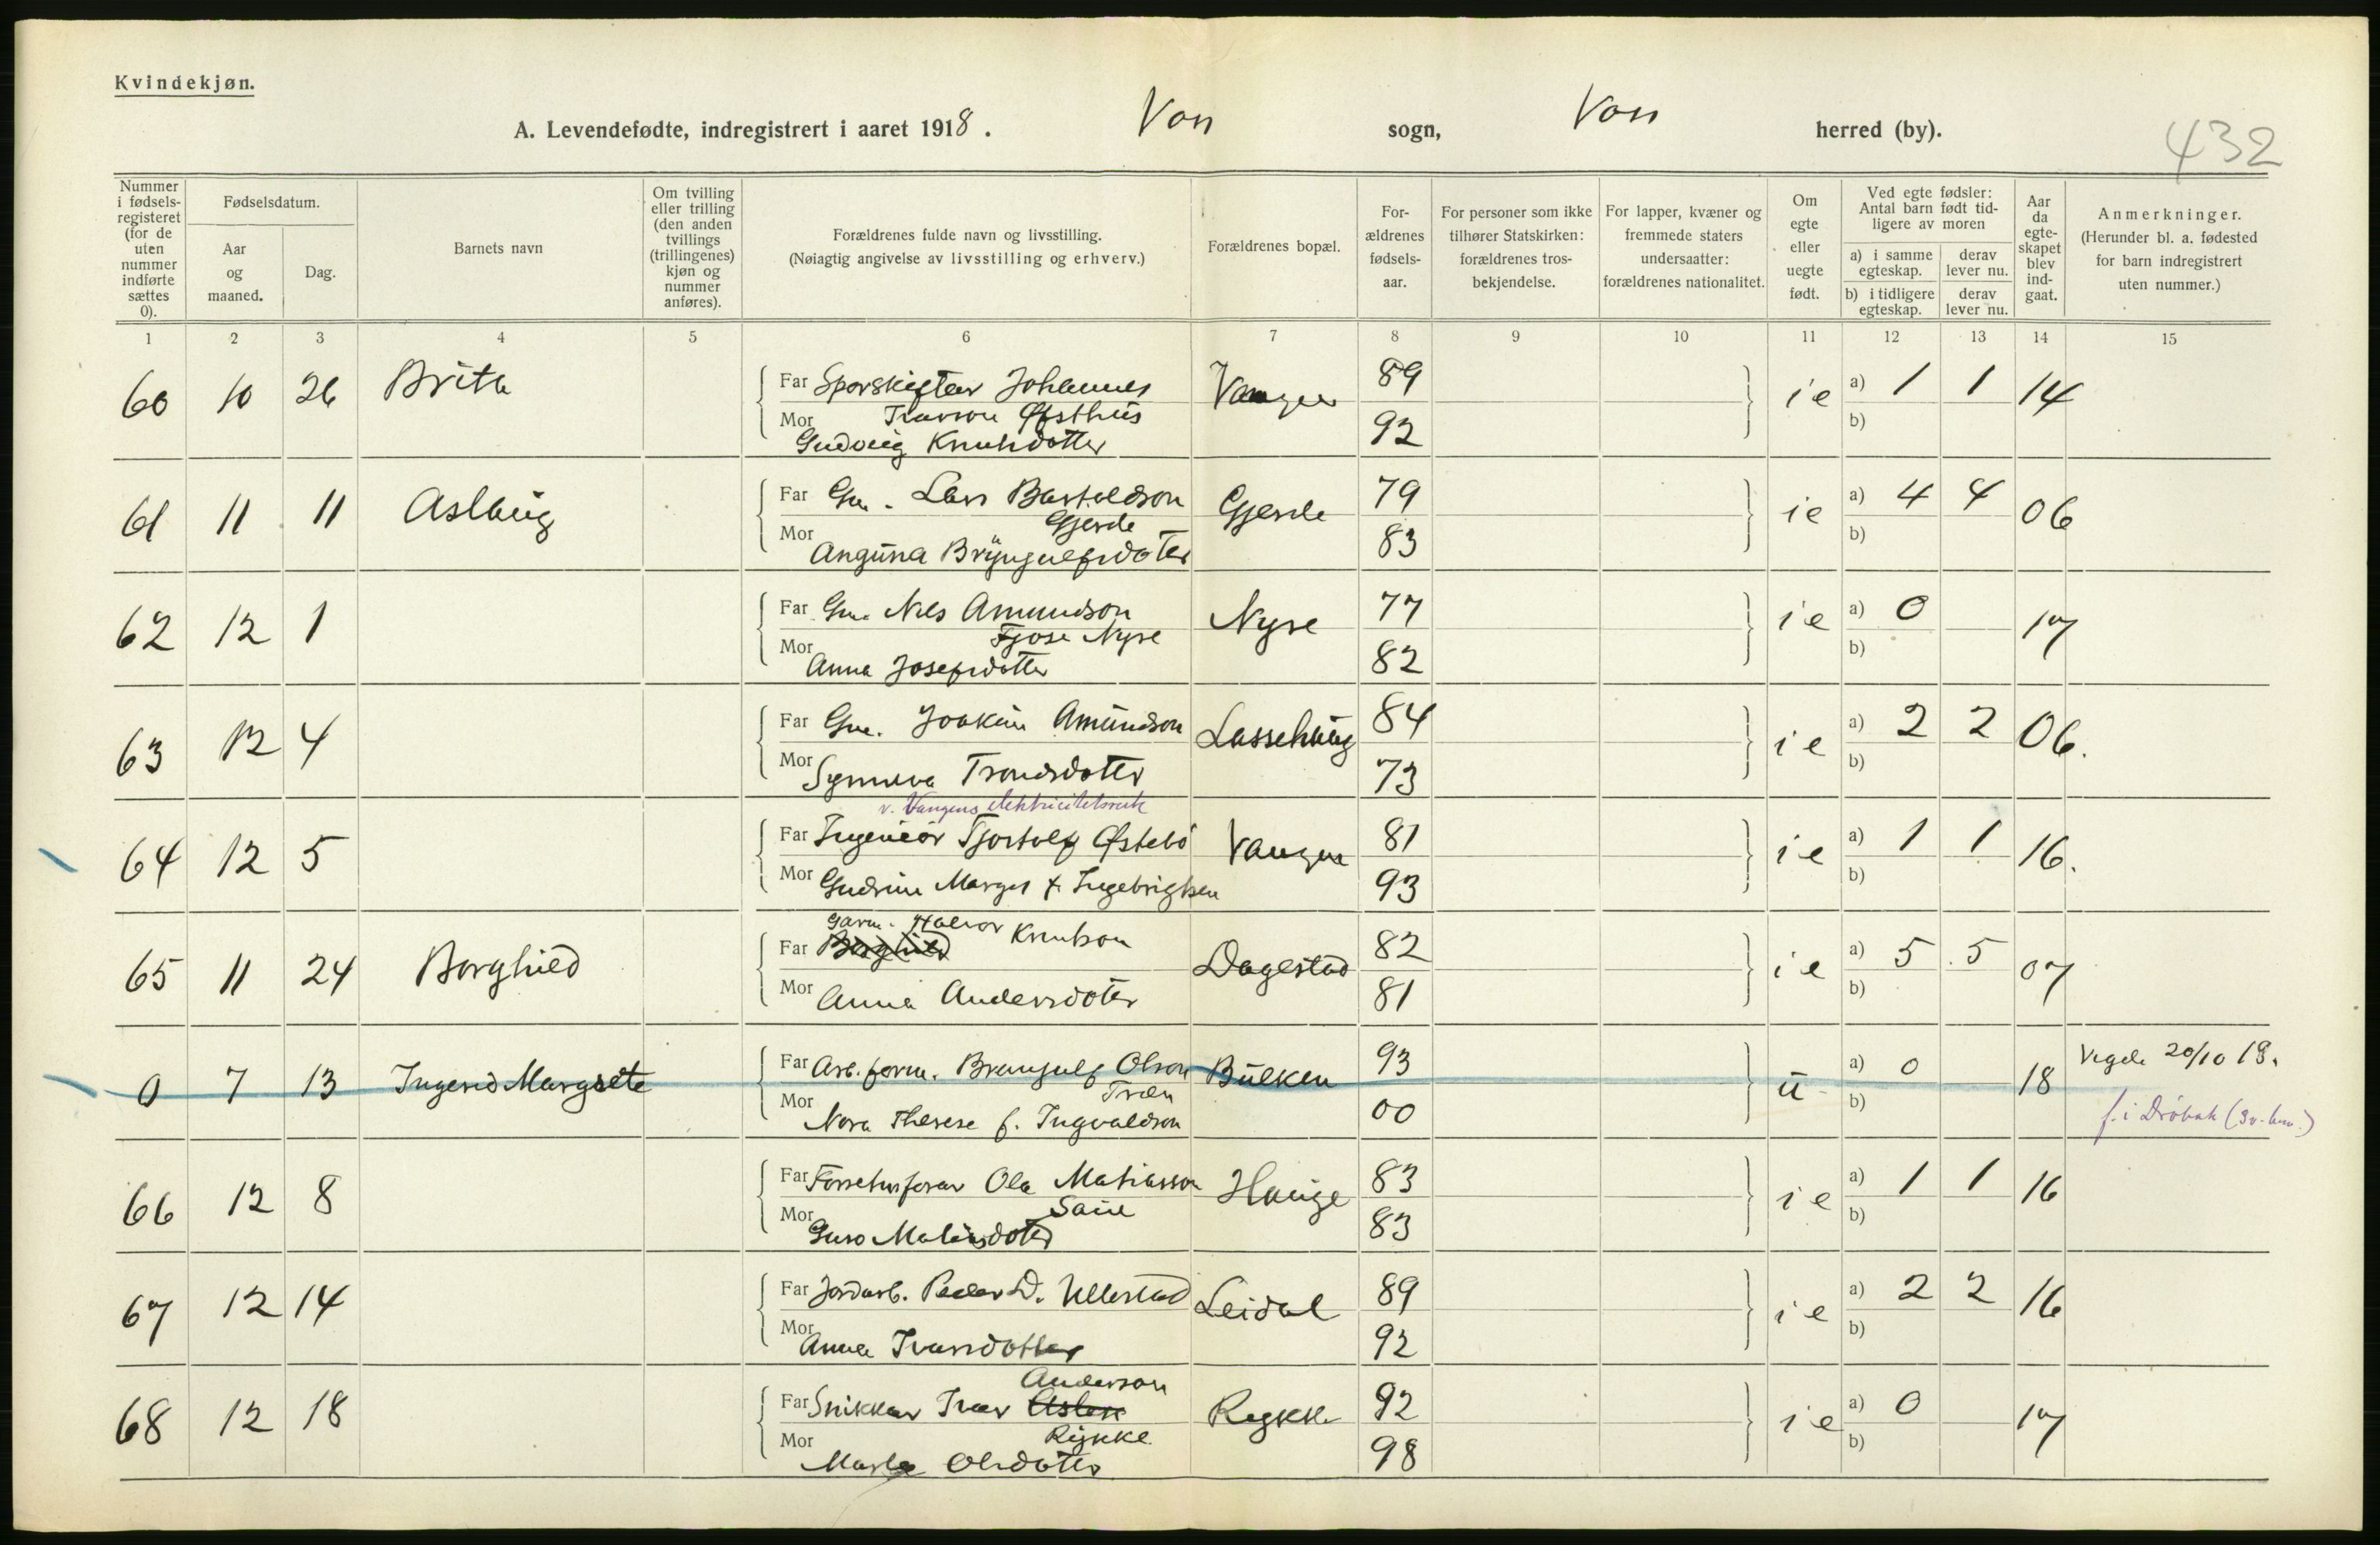 Kvindekjøn.
A. Levendefødte, indregistrert i aaret 1918. Voss sogn, Voss herred (by).
432
Nummer i fødsels-registeret (for de uten nummer indførte sættes 0).
Fødselsdatum.
Aar og maaned.
Dag.
Barnets navn
Om tvilling eller trilling (den anden tvillings (trillingenes) kjøn og nummer anføres).
Forældrenes fulde navn og livsstilling.
(Nøiagtig angivelse av livsstilling og erhverv.)
Forældrenes bopæl.
For-ældrenes fødsels-aar.
For personer som ikke tilhører Statskirken: forældrenes tros-bekjendelse.
For lapper, kvæner og fremmede staters undersaatter: forældrenes nationalitet.
Om egte eller uegte født.
Ved egte fødsler: Antal barn født tid-ligere av moren
a) i samme egteskap. derav lever nu.
b) i tidligere egteskap. derav lever nu.
Aar da egte-skapet blev ind-gaat.
Anmerkninger.
(Herunder bl. a. fødested for barn indregistrert uten nummer.)
1 2 3 4 5 6 7 8 9 10 11 12 13 14 15
60 10 26 Brita Far Sporskiftar Johannes Vangen 89 ie a) 1 1 14
Ivarson Øfsthus
Mor Gudveig Knutsdotter 92 b)
61 11 11 Aslaug Far Gm. Lars Bartoldson Gjerde 79 ie a) 4 4 06
Gjerde
Mor Anguna Brynjulfsdoter 83 b)
62 12 1 Far Gm. Nils Amundson Nyre 77 ie a) 0 17
Fjose Nyre
Mor Anna Josefsdotter 82 b)
63 12 4 Far Gm. Joakim Amundson Lassehaug 84 ie a) 2 2 06.
Mor Synneva Trondsdotter 73 b)
v. Vangens elektricitetsverk
64 12 5 Far Ingeniör Tjostolf Østebö Vangen 81 ie a) 1 1 16.
Mor Gudrun Margot f. Ingebrigtsen 93 b)
Garm. Halvor Knutson
65 11 24 Borghild Far Borghild Dagestad 82 ie a) 5 5 07
Mor Anna Andersdoter 81 b)
0 7 13 Ingerid Margrete Far Arb. form. Brynjulf Olson Bulken 93 u a) 0 18 Vegde 20/10 18.
Træn
Mor Nora Therese f. Ingvaldson 00 b) f. i Dröbak
66 12 8 Far Forretnsforar Ola Matiasson Hauge 83 ie a) 1 1 16
Saue
Mor Guro Matiasdoter 83 b)
67 12 14 Far Jordarb. Peder D. Ullestad Leidal 89 ie a) 2 2 16
Mor Anna Ivarsdotter 92 b)
Anderson
68 12 18 Far Snikkar Ivar Aslak Rykke 92 ie a) 0 17
Rykke
Mor Marta Olsdotter 98 b)